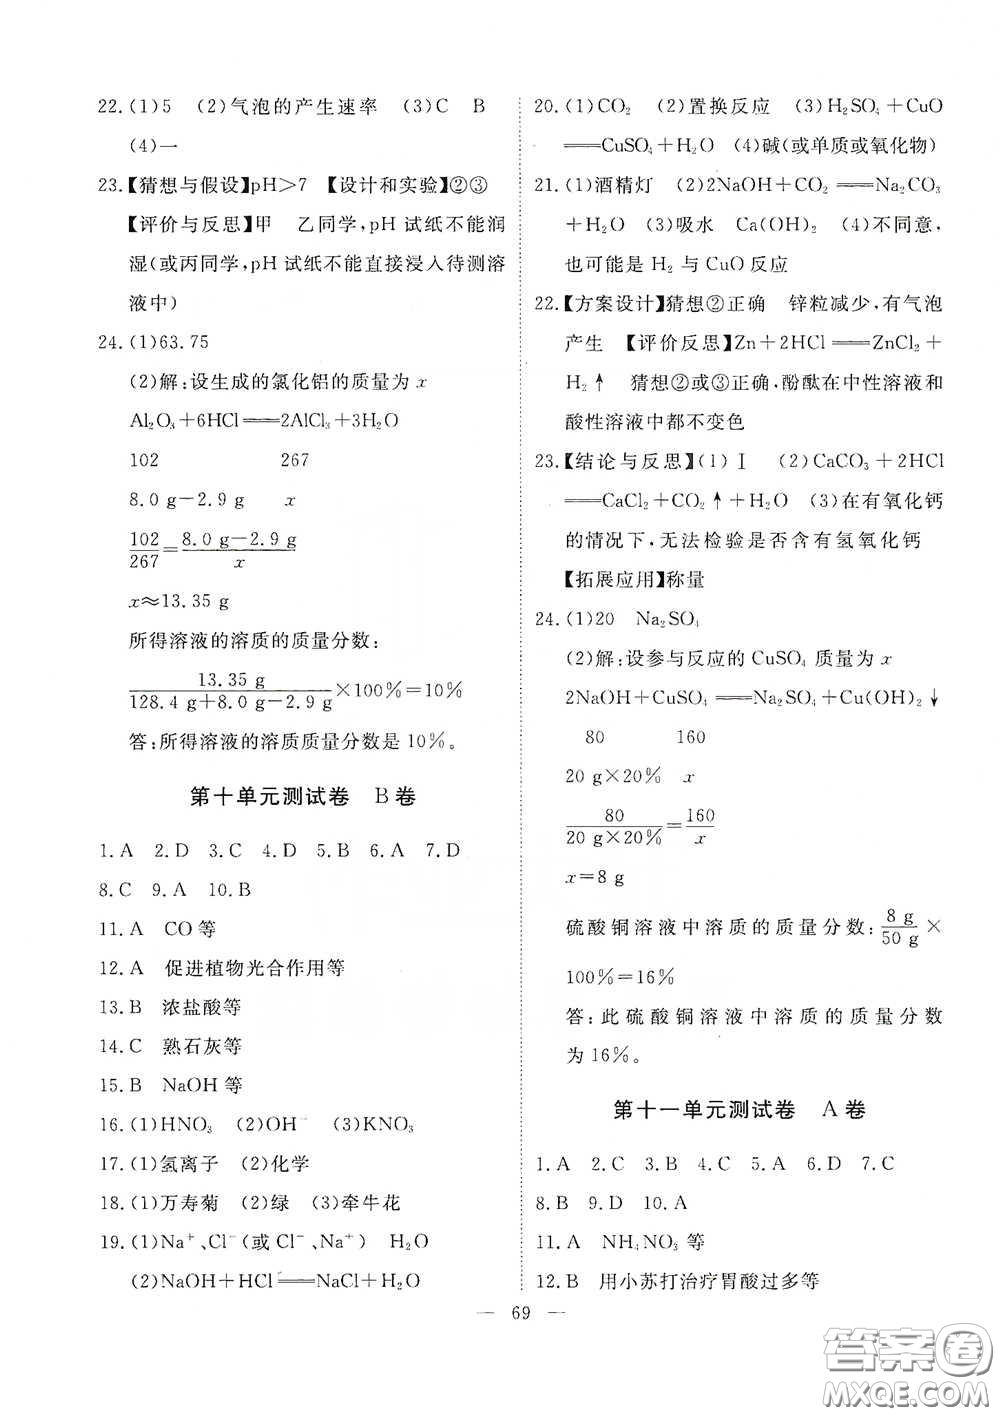 22.(1)5　(2)气泡的产生速率　(3)C　B
(4)一
23.【猜想与假设】pH>7　【设计和实验】②③
【评价与反思】甲　乙同学,pH 试纸不能润
湿(或丙同学,pH 试纸不能直接浸入待测溶
液中)
24.(1)63.75
(2)解:设生成的氯化铝的质量为 x
Al₂O₃+6HCl══2AlCl₃+3H₂O
102　267
8.0 g−2.9 g　x
102/267=(8.0 g−2.9 g)/x
x≈13.35 g
所得溶液的溶质的质量分数:
13.35 g/(128.4 g+8.0 g−2.9 g)×100%=10%
答:所得溶液的溶质质量分数是10%。
第十单元测试卷　B卷
1.A　2.D　3.C　4.D　5.B　6.A　7.D
8.C　9.A　10.B
11.A　CO等
12.A　促进植物光合作用等
13.B　浓盐酸等
14.C　熟石灰等
15.B　NaOH等
16.(1)HNO₃　(2)OH⁻　(3)KNO₃
17.(1)氢离子　(2)化学
18.(1)万寿菊　(2)绿　(3)牵牛花
19.(1)Na⁺、Cl⁻(或 Cl⁻、Na⁺)　H₂O
(2)NaOH+HCl══NaCl+H₂O
20.(1)CO₂　(2)置换反应　(3)H₂SO₄+CuO
══CuSO₄+H₂O　(4)碱(或单质或氧化物)
21.(1)酒精灯　(2)2NaOH+CO₂══Na₂CO₃
+H₂O　(3)吸水　Ca(OH)₂　(4)不同意,
也可能是 H₂ 与 CuO 反应
22.【方案设计】猜想②正确　锌粒减少,有气泡
产生　【评价反思】Zn+2HCl══ZnCl₂+
H₂↑　猜想②或③正确,酚酞在中性溶液和
酸性溶液中都不变色
23.【结论与反思】(1)Ⅰ　(2)CaCO₃+2HCl
══CaCl₂+CO₂↑+H₂O　(3)在有氧化钙
的情况下,无法检验是否含有氢氧化钙
【拓展应用】称量
24.(1)20　Na₂SO₄
(2)解:设参与反应的 CuSO₄ 质量为 x
2NaOH+CuSO₄══Na₂SO₄+Cu(OH)₂↓
80　160
20 g×20%　x
80/(20 g×20%)=160/x
x=8 g
硫酸铜溶液中溶质的质量分数:8 g/50 g×
100%=16%
答:此硫酸铜溶液中溶质的质量分数
为16%。
第十一单元测试卷　A卷
1.A　2.C　3.B　4.C　5.A　6.D　7.C
8.B　9.D　10.A
11.A　NH₄NO₃ 等
12.B　用小苏打治疗胃酸过多等
— 69 —
答案圈
MXQE.COM